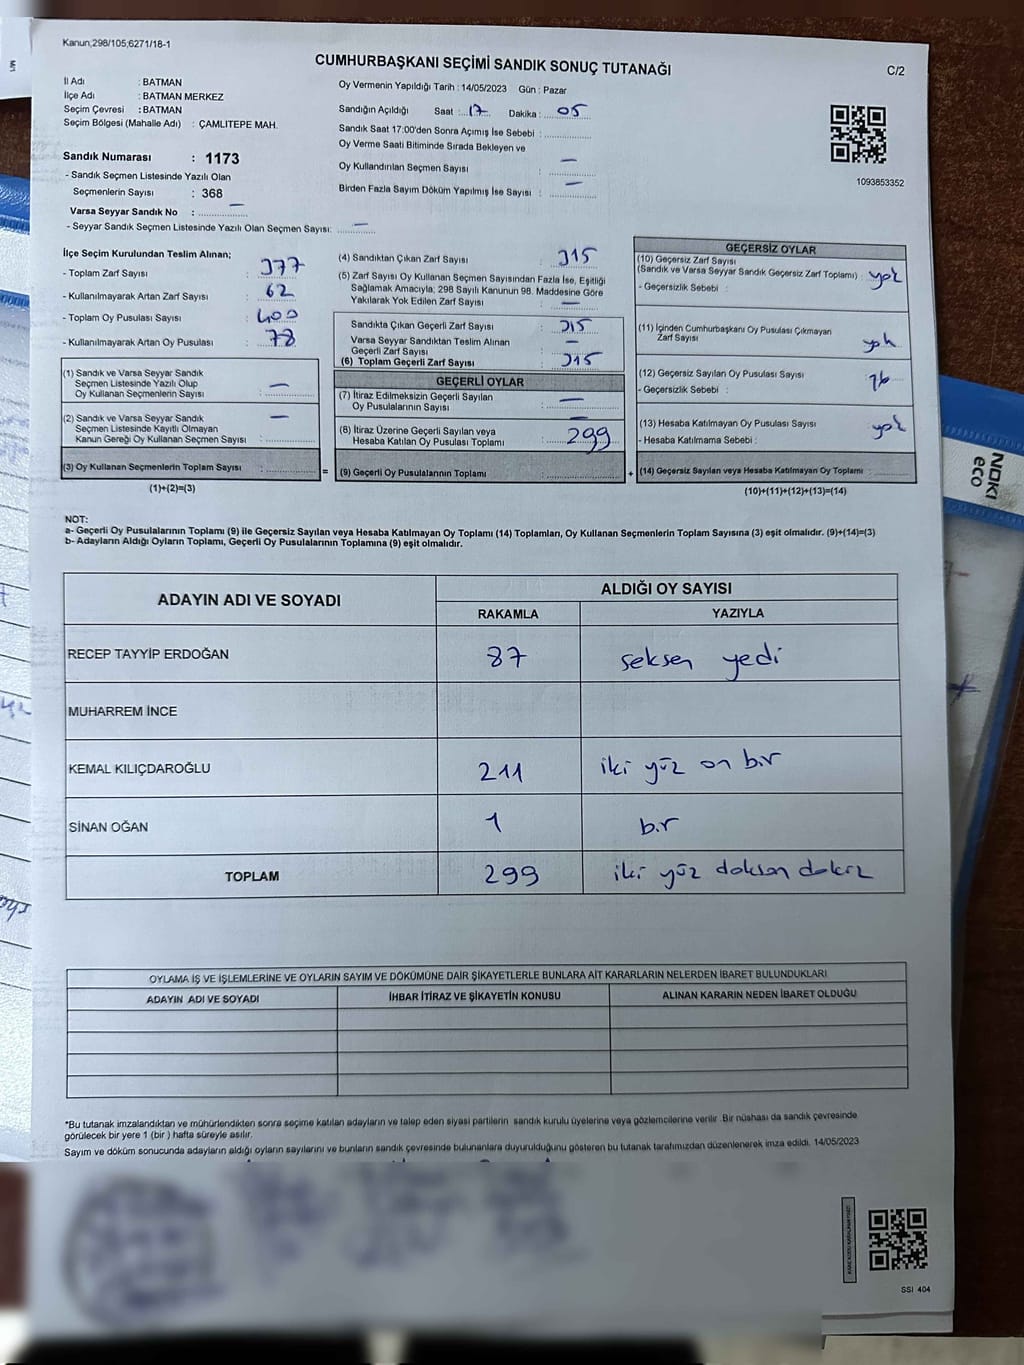 Kanun;298/105;6271/18-1
CUMHURBAŞKANI SEÇİMİ SANDIK SONUÇ TUTANAĞI
C/2
İl Adı : BATMAN
İlçe Adı : BATMAN MERKEZ
Seçim Çevresi : BATMAN
Seçim Bölgesi (Mahalle Adı) : ÇAMLITEPE MAH.
Sandık Numarası : 1173
- Sandık Seçmen Listesinde Yazılı Olan
Seçmenlerin Sayısı : 368
Varsa Seyyar Sandık No : —
- Seyyar Sandık Seçmen Listesinde Yazılı Olan Seçmen Sayısı: —
Oy Vermenin Yapıldığı Tarih : 14/05/2023 Gün : Pazar
Sandığın Açıldığı Saat : 17 Dakika : 05
Sandık Saat 17:00'den Sonra Açımış İse Sebebi :
Oy Verme Saati Bitiminde Sırada Bekleyen ve
Oy Kullandırılan Seçmen Sayısı : —
Birden Fazla Sayım Döküm Yapılmış İse Sayısı : —
1093853352
İlçe Seçim Kurulundan Teslim Alınan;
- Toplam Zarf Sayısı : 377
- Kullanılmayarak Artan Zarf Sayısı : 62
- Toplam Oy Pusulası Sayısı : 400
- Kullanılmayarak Artan Oy Pusulası : 78
(1) Sandık ve Varsa Seyyar Sandık
Seçmen Listesinde Yazılı Olup
Oy Kullanan Seçmenlerin Sayısı : —
(2) Sandık ve Varsa Seyyar Sandık
Seçmen Listesinde Kayıtlı Olmayan
Kanun Gereği Oy Kullanan Seçmen Sayısı : —
(3) Oy Kullanan Seçmenlerin Toplam Sayısı :
(1)+(2)=(3)
=
(4) Sandıktan Çıkan Zarf Sayısı : 315
(5) Zarf Sayısı Oy Kullanan Seçmen Sayısından Fazla İse, Eşitliği
Sağlamak Amacıyla; 298 Sayılı Kanunun 98. Maddesine Göre
Yakılarak Yok Edilen Zarf Sayısı : —
Sandıkta Çıkan Geçerli Zarf Sayısı : 315
Varsa Seyyar Sandıktan Teslim Alınan
Geçerli Zarf Sayısı : —
(6) Toplam Geçerli Zarf Sayısı : 315
GEÇERLİ OYLAR
(7) İtiraz Edilmeksizin Geçerli Sayılan
Oy Pusulalarının Sayısı : —
(8) İtiraz Üzerine Geçerli Sayılan veya
Hesaba Katılan Oy Pusulası Toplamı : 299
(9) Geçerli Oy Pusulalarının Toplamı :
+
GEÇERSİZ OYLAR
(10) Geçersiz Zarf Sayısı
(Sandık ve Varsa Seyyar Sandık Geçersiz Zarf Toplamı) : yok
- Geçersizlik Sebebi :
(11) İçinden Cumhurbaşkanı Oy Pusulası Çıkmayan
Zarf Sayısı : yok
(12) Geçersiz Sayılan Oy Pusulası Sayısı : 16
- Geçersizlik Sebebi :
(13) Hesaba Katılmayan Oy Pusulası Sayısı : yok
- Hesaba Katılmama Sebebi :
(14) Geçersiz Sayılan veya Hesaba Katılmayan Oy Toplamı :
(10)+(11)+(12)+(13)=(14)
NOT:
a- Geçerli Oy Pusulalarının Toplamı (9) ile Geçersiz Sayılan veya Hesaba Katılmayan Oy Toplamı (14) Toplamları, Oy Kullanan Seçmenlerin Toplam Sayısına (3) eşit olmalıdır. (9)+(14)=(3)
b- Adayların Aldığı Oyların Toplamı, Geçerli Oy Pusulalarının Toplamına (9) eşit olmalıdır.
ADAYIN ADI VE SOYADI
ALDIĞI OY SAYISI
RAKAMLA YAZIYLA
RECEP TAYYİP ERDOĞAN 87 seksen yedi
MUHARREM İNCE
KEMAL KILIÇDAROĞLU 211 iki yüz on bir
SİNAN OĞAN 1 bir
TOPLAM 299 iki yüz doksan dokuz
OYLAMA İŞ VE İŞLEMLERİNE VE OYLARIN SAYIM VE DÖKÜMÜNE DAİR ŞİKAYETLERLE BUNLARA AİT KARARLARIN NELERDEN İBARET BULUNDUKLARI
ADAYIN ADI VE SOYADI İHBAR İTİRAZ VE ŞİKAYETİN KONUSU ALINAN KARARIN NEDEN İBARET OLDUĞU
*Bu tutanak imzalandıktan ve mühürlendikten sonra seçime katılan adayların ve talep eden siyasi partilerin sandık kurulu üyelerine veya gözlemcilerine verilir. Bir nüshası da sandık çevresinde
görülecek bir yere 1 (bir ) hafta süreyle asılır.
Sayım ve döküm sonucunda adayların aldığı oyların sayılarını ve bunların sandık çevresinde bulunanlara duyurulduğunu gösteren bu tutanak tarafımızdan düzenlenerek imza edildi. 14/05/2023
SSI 404
NOKI
eco